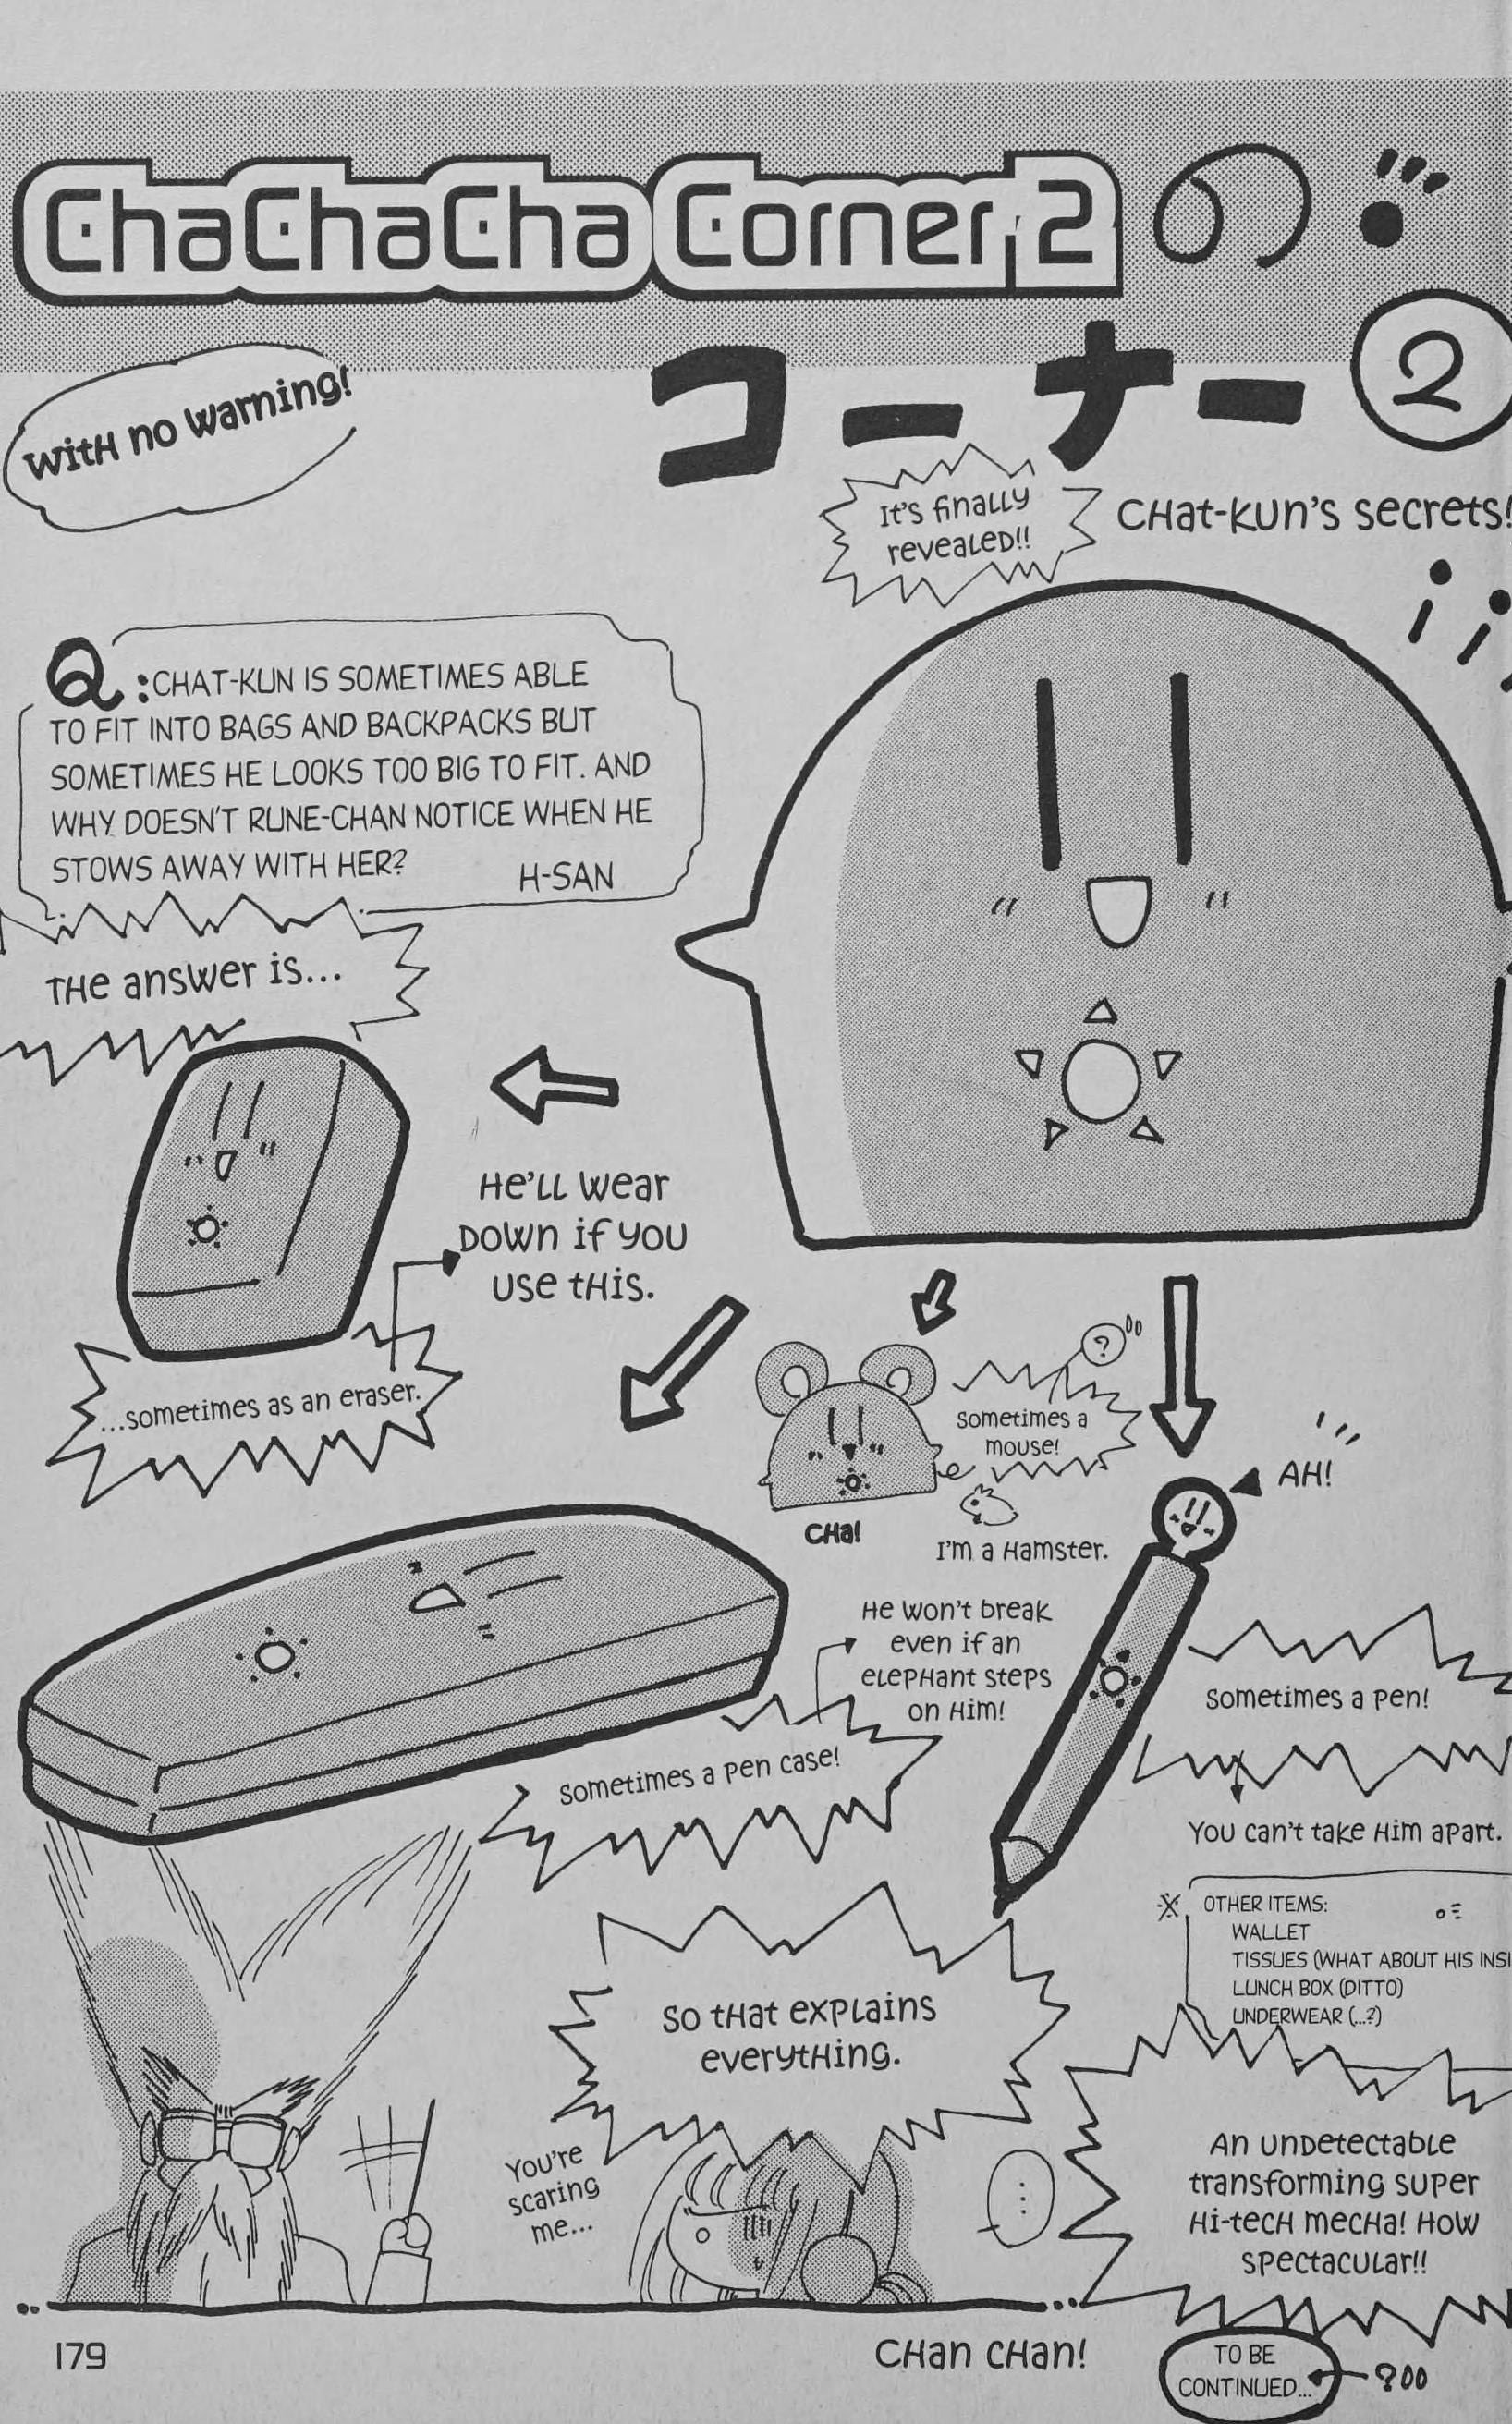 ChaChaCha Corner 2
の
コーナー②
With no warning!
It's finally
revealed!!
Chat-kun's secrets!
Q:CHAT-KUN IS SOMETIMES ABLE
TO FIT INTO BAGS AND BACKPACKS BUT
SOMETIMES HE LOOKS TOO BIG TO FIT. AND
WHY DOESN'T RUNE-CHAN NOTICE WHEN HE
STOWS AWAY WITH HER?
H-SAN
The answer is...
He'll wear
down if you
use this.
...sometimes as an eraser.
?
sometimes a
mouse!
Cha!
I'm a hamster.
AH!
He won't break
even if an
elephant steps
on him!
sometimes a pen case!
sometimes a pen!
You can't take him apart.
※ OTHER ITEMS:
WALLET
TISSUES (WHAT ABOUT HIS INSI
LUNCH BOX (DITTO)
UNDERWEAR (...?)
So that explains
everything.
You're
scaring
me...
...
An undetectable
transforming super
hi-tech mecha! How
spectacular!!
179
Chan chan!
TO BE
CONTINUED...
?